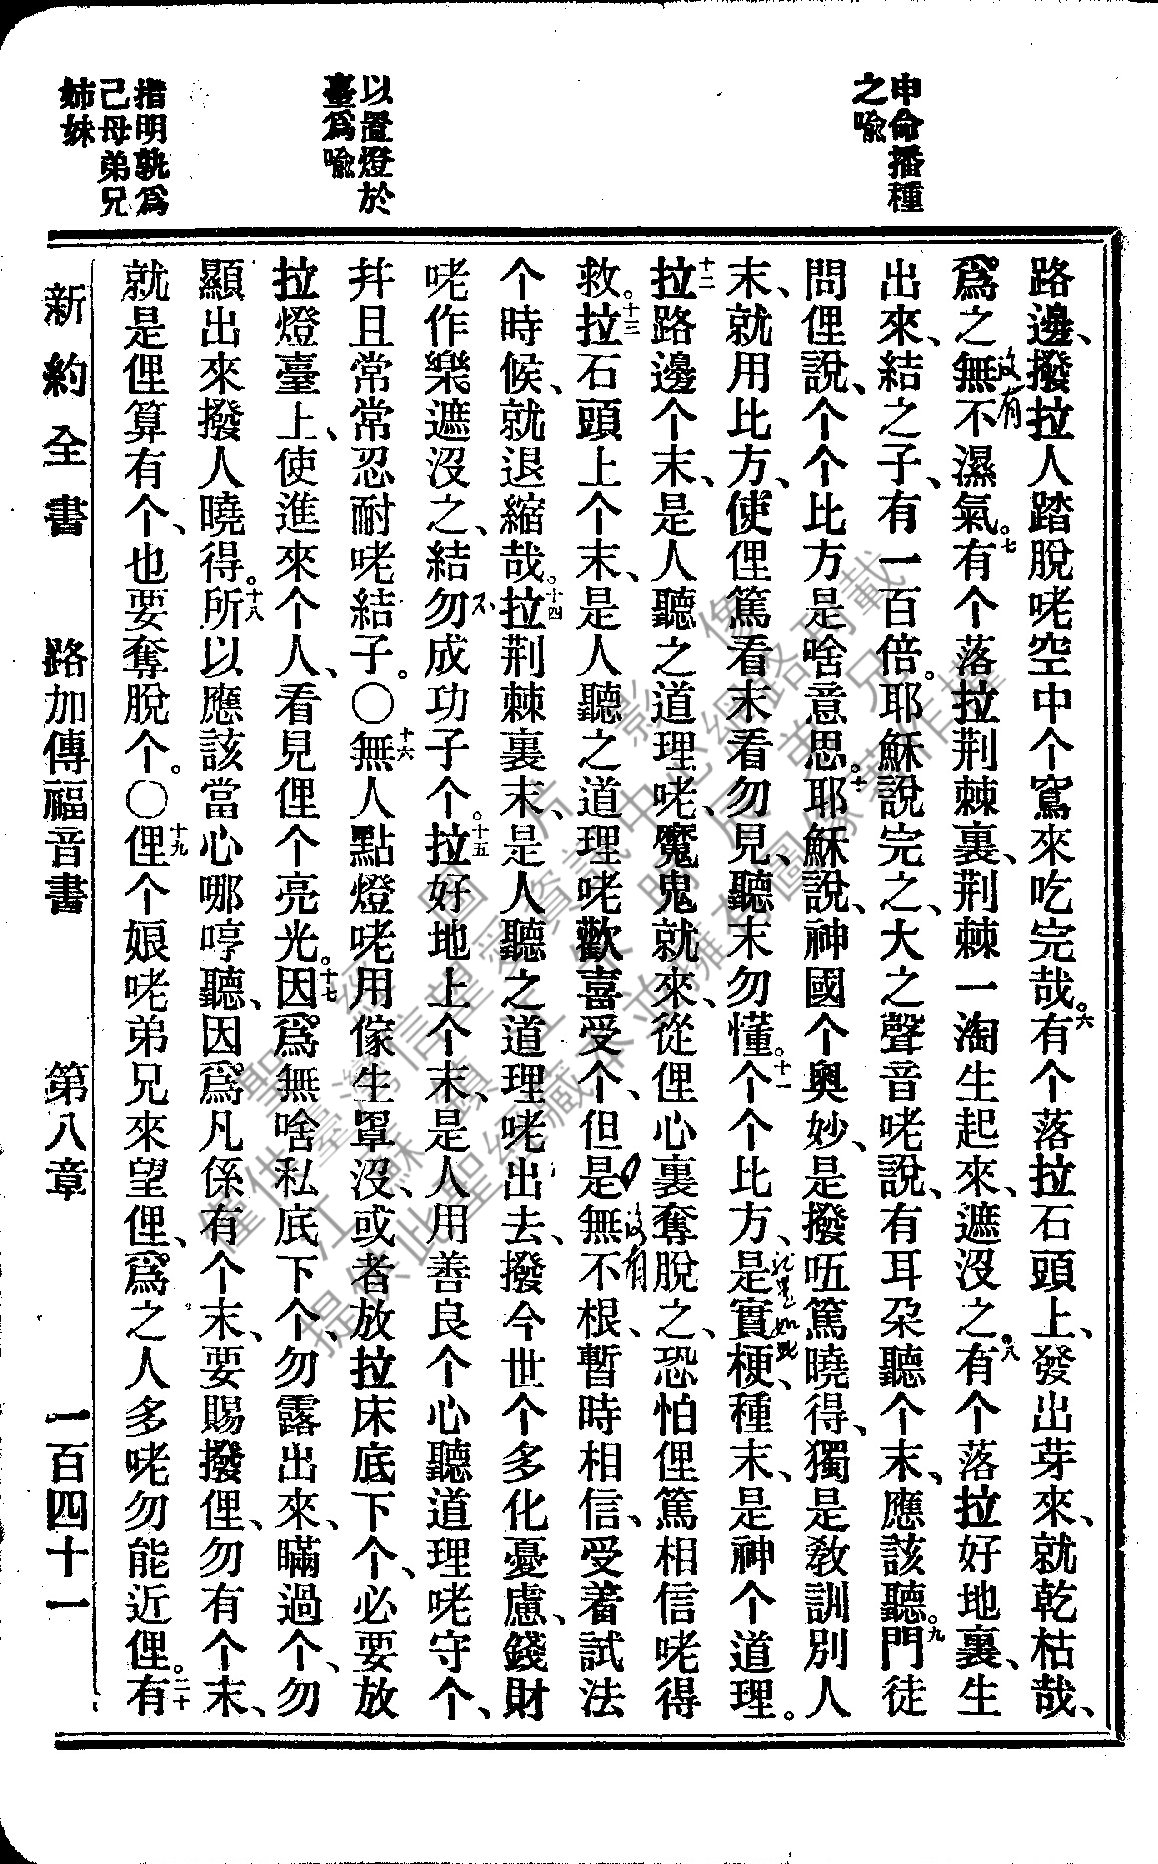 申命播種
之喩
以置燈於
臺爲喩
指明孰爲
己母弟兄
姊妹
路邊、撥拉人踏脫咾空中个窵來吃完哉。六有个落拉石頭上、發出芽來、就乾枯哉、
爲之無不濕氣。七有个落拉荆棘裏、荆棘一淘生起來、遮沒之。八有个落拉好地裏、生
出來、結之子、有一百倍。耶穌說完之、大之聲音咾說、有耳朶聽个末、應該聽。九門徒
問俚說、个个比方是啥意思。十耶穌說、神國个奥妙、是撥㕶篤曉得、獨是敎訓別人
末、就用比方、使俚篤看末看勿見、聽末勿懂。十一个个比方、是實梗、種末、是神个道理。
十二拉路邊个末、是人聽之道理咾、魔鬼就來、從俚心裏奪脫之、恐怕俚篤相信咾得
救。十三拉石頭上个末、是人聽之道理咾歡喜受个、但是無不根、暫時相信、受着試法
个時候、就退縮哉。十四拉荆棘裏末、是人聽之道理咾出去、撥今世个多化憂慮、錢財
咾作樂遮沒之、結勿成功子个。十五拉好地上个末、是人用善良个心聽道理咾守个、
幷且常常忍耐咾結子。〇十六無人點燈咾用傢生罩沒、或者放拉床底下个、必要放
拉燈臺上、使進來个人、看見俚个亮光。十七因爲無啥私底下个、勿露出來、瞞過个、勿
顯出來撥人曉得。十八所以應該當心哪哼聽、因爲凡係有个末、要賜撥俚、勿有个末、
就是俚算有个、也要奪脫个。〇十九俚个娘咾弟兄來望俚、爲之人多咾勿能近俚。二十有
新約全書 路加傳福音書 第八章 一百四十一
没有
没有